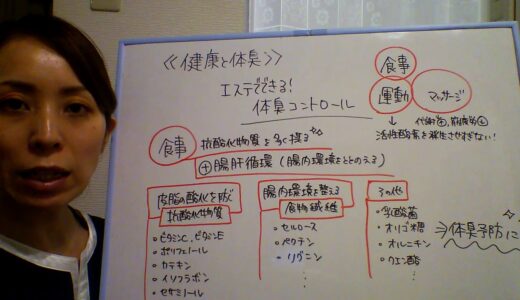 《健康と体臭》
エステでできる!
体臭コントロール
食事
運動
マッサージ
活性酸素を発生させすぎない!
食事
抗酸化物質を多く摂る
⊕腸肝循環(腸内環境をととのえる)
皮脂の酸化を防ぐ
抗酸化物質
・ビタミンC、ビタミンE
・ポリフェノール
・カテキン
・イソフラボン
・セサミノール
腸内環境を整える
食物繊維
・セルロース
・ペクチン
・リグニン
その他
・乳酸菌
・オリゴ糖
・オルニチン
・クエン酸
⇒体臭予防に